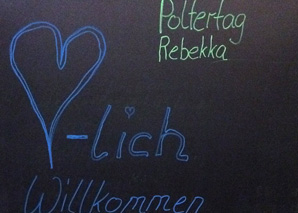 Poltertag
Rebekka
-lich
Willkommen